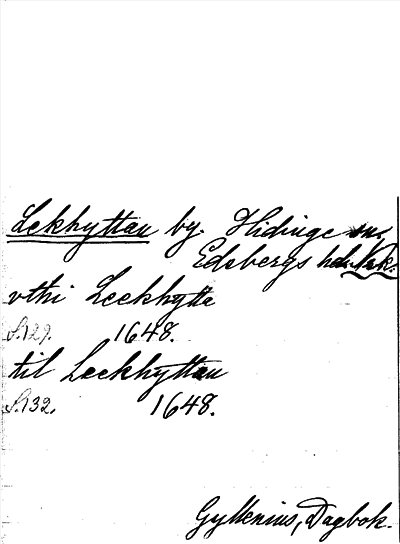 Lekhyttan by. Hidinge sn.
Edsbergs hd. Nrk.
vthi Leekhytta
S.129. 1648.
til Leekhyttan
S.132. 1648.
Gyllenius, Dagbok.